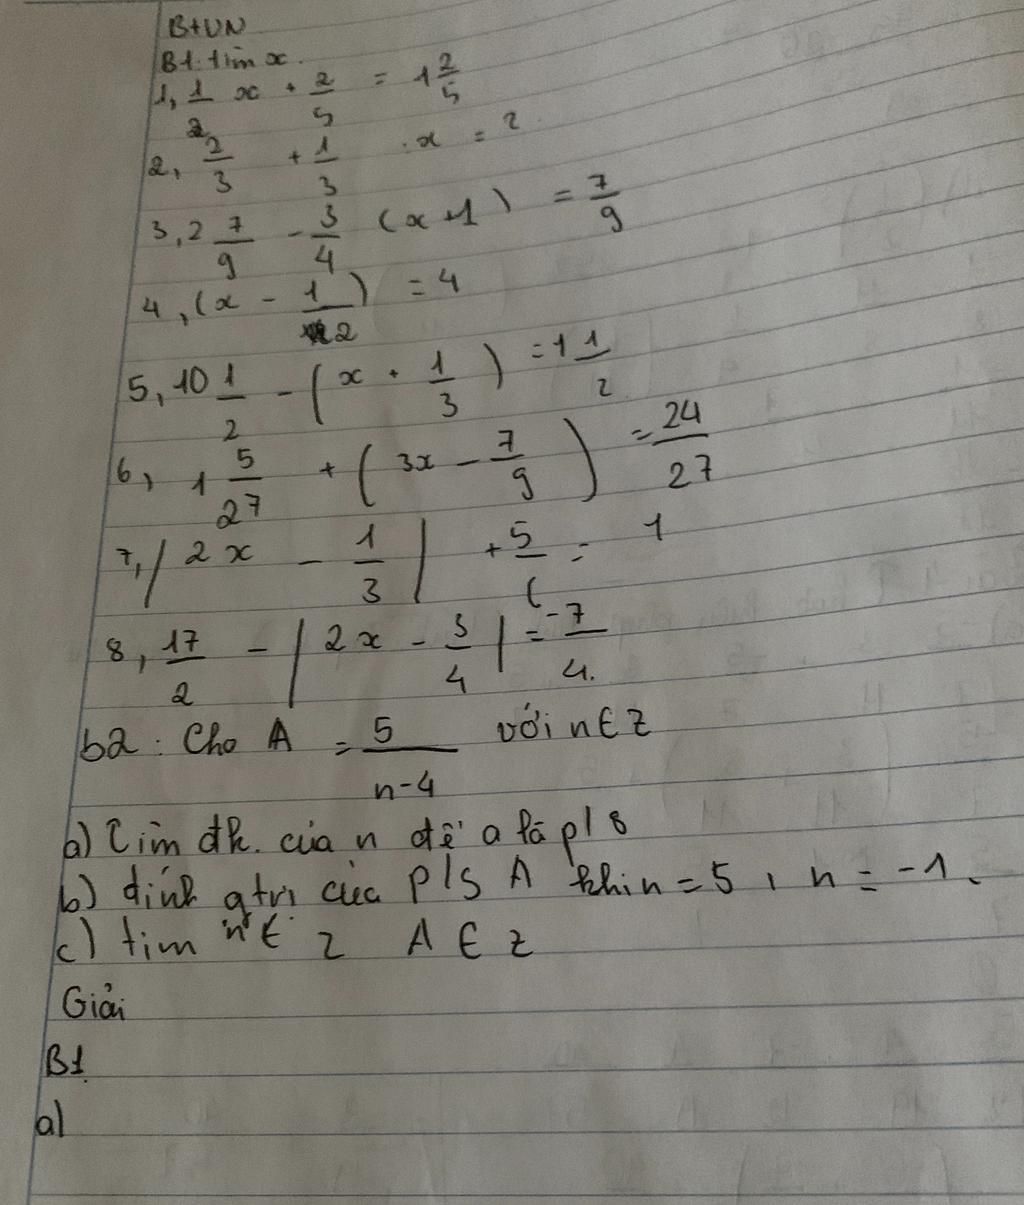 B+VN
B1: tìm x.
1, 1/2 x + 2/5 = 1 2/5
2, 2/3 + 1/3 . x = 2
3, 2 7/9 - 3/4 (x+1) = 7/9
4, (x - 1/2) = 4
5, 10 1/2 - (x + 1/3) = 1 1/2
6, 1 5/27 + (3x - 7/9) = 24/27
7, |2x - 1/3| + 5/6 = 1
8, 17/2 - |2x - 3/4| = -7/4.
b2: Cho A = 5/n-4 với n∈Z
a) Tìm đk. của n để a là p/s
b) tính gtrị của p/s A khi n = 5, n = -1.
c) tìm n ∈ Z A ∈ Z
Giải
B1
a)